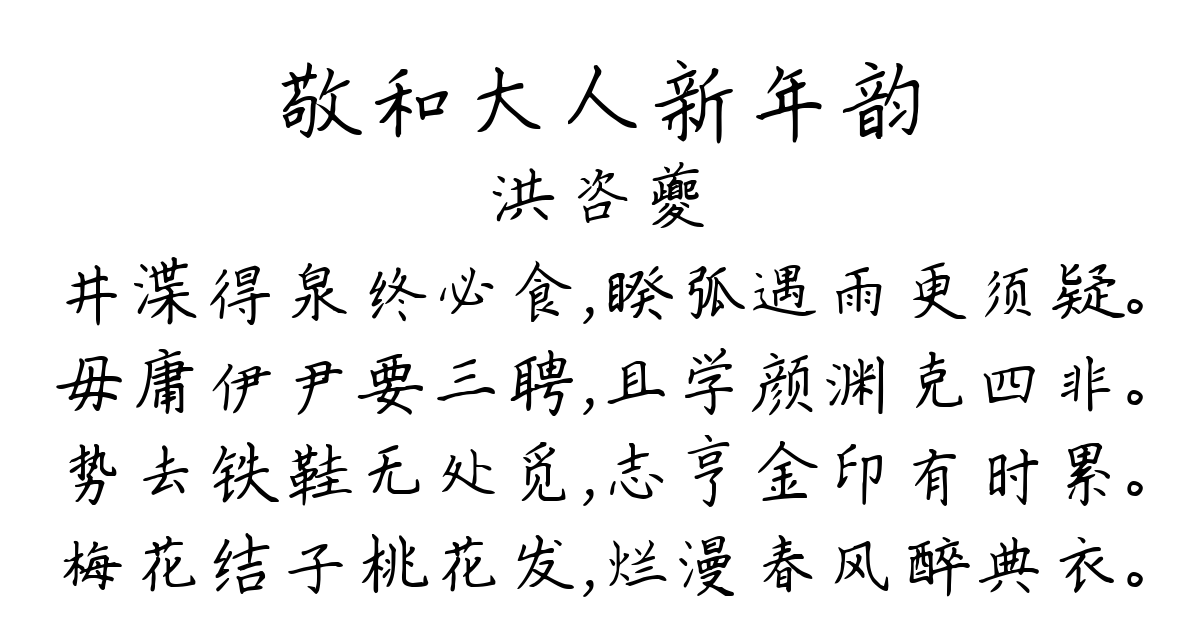 敬和大人新年韵
洪咨夔
井渫得泉终必食,睽弧遇雨更须疑。
毋庸伊尹要三聘,且学颜渊克四非。
势去铁鞋无处觅,志亨金印有时累。
梅花结子桃花发,烂漫春风醉典衣。